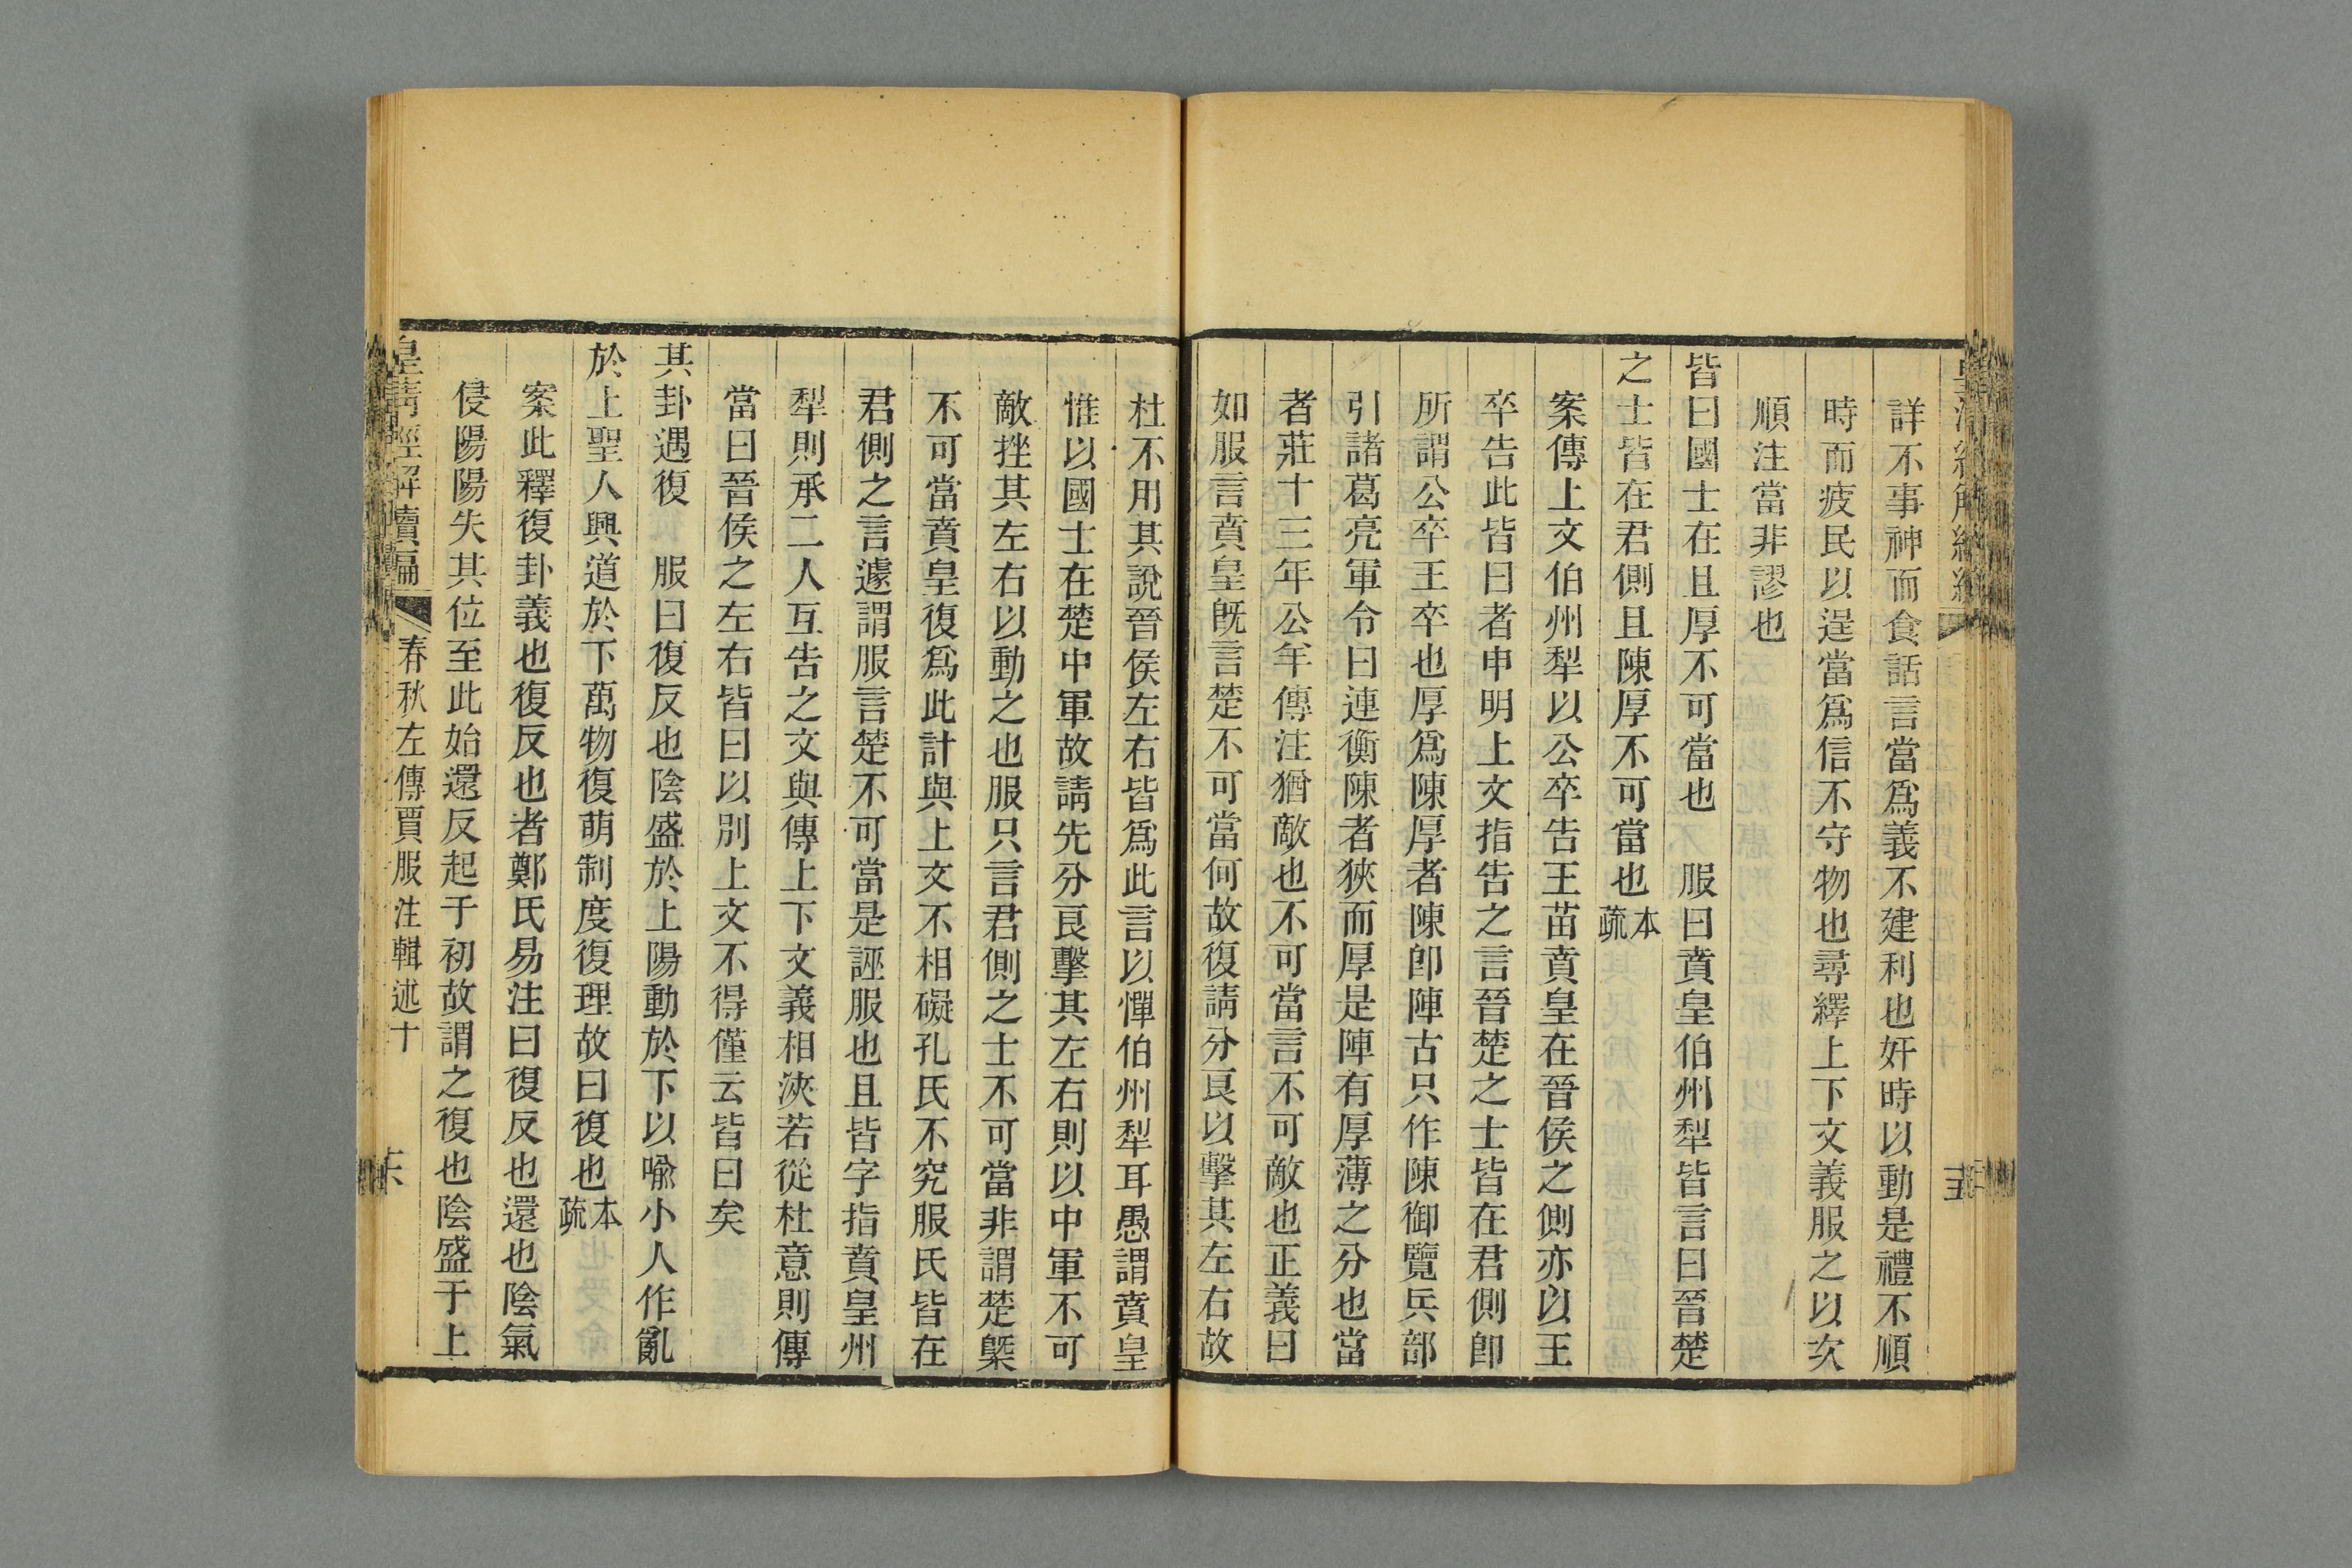 詳不事神而食話言當爲義不建利也奸時以動是禮不順
時而疲民以逞當爲信不守物也尋繹上下文義服之以次
順注當非謬也
皆曰國士在且厚不可當也　服曰賁皇伯州犁皆言曰晉楚
之士皆在君側且陳厚不可當也本疏
案傳上文伯州犁以公卒告王苗賁皇在晉侯之側亦以王
卒告此皆曰者申明上文指告之言晉楚之士皆在君側卽
所謂公卒王卒也厚爲陳厚者陳卽陣古只作陳御覽兵部
引諸葛亮軍令曰連衡陳者狹而厚是陣有厚薄之分也當
者莊十三年公羊傳注猶敵也不可當言不可敵也正義曰
如服言賁皇旣言楚不可當何故復請分良以擊其左右故
杜不用其說晉侯左右皆爲此言以憚伯州犁耳愚謂賁皇
惟以國士在楚中軍故請先分良擊其左右則以中軍不可
敵挫其左右以動之也服只言君側之士不可當非謂楚槩
不可當賁皇復爲此計與上文不相礙孔氏不究服氏皆在
君側之言遽謂服言楚不可當是誣服也且皆字指賁皇州
犁則承二人互告之文與傳上下文義相浹若從杜意則傳
當曰晉侯之左右皆曰以別上文不得僅云皆曰矣
其卦遇復　服曰復反也陰盛於上陽動於下以喩小人作亂
於上聖人興道於下萬物復萌制度復理故曰復也本疏
案此釋復卦義也復反也者鄭氏易注曰復反也還也陰氣
侵陽陽失其位至此始還反起于初故謂之復也陰盛于上
皇清經解續編　春秋左傳賈服注輯述十